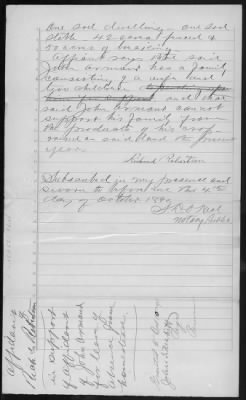 One sod dwelling, one sod
stable - 42 acres fenced &
50 acres of breaking.
Affiant says that said
John Armant has a family
consisting of a wife and
two children
and that
said John Armant cannot
support his family from
the products of his crop
raised on said land the present
year.
Richard Robertson
Subscribed in my presence and
sworn to before me this 4th
day of October 1890
Notary Public
Affidavit
of
Rich'd Robertson
in support
of affidavit
of John Armant
for leave of
absence from
homestead.